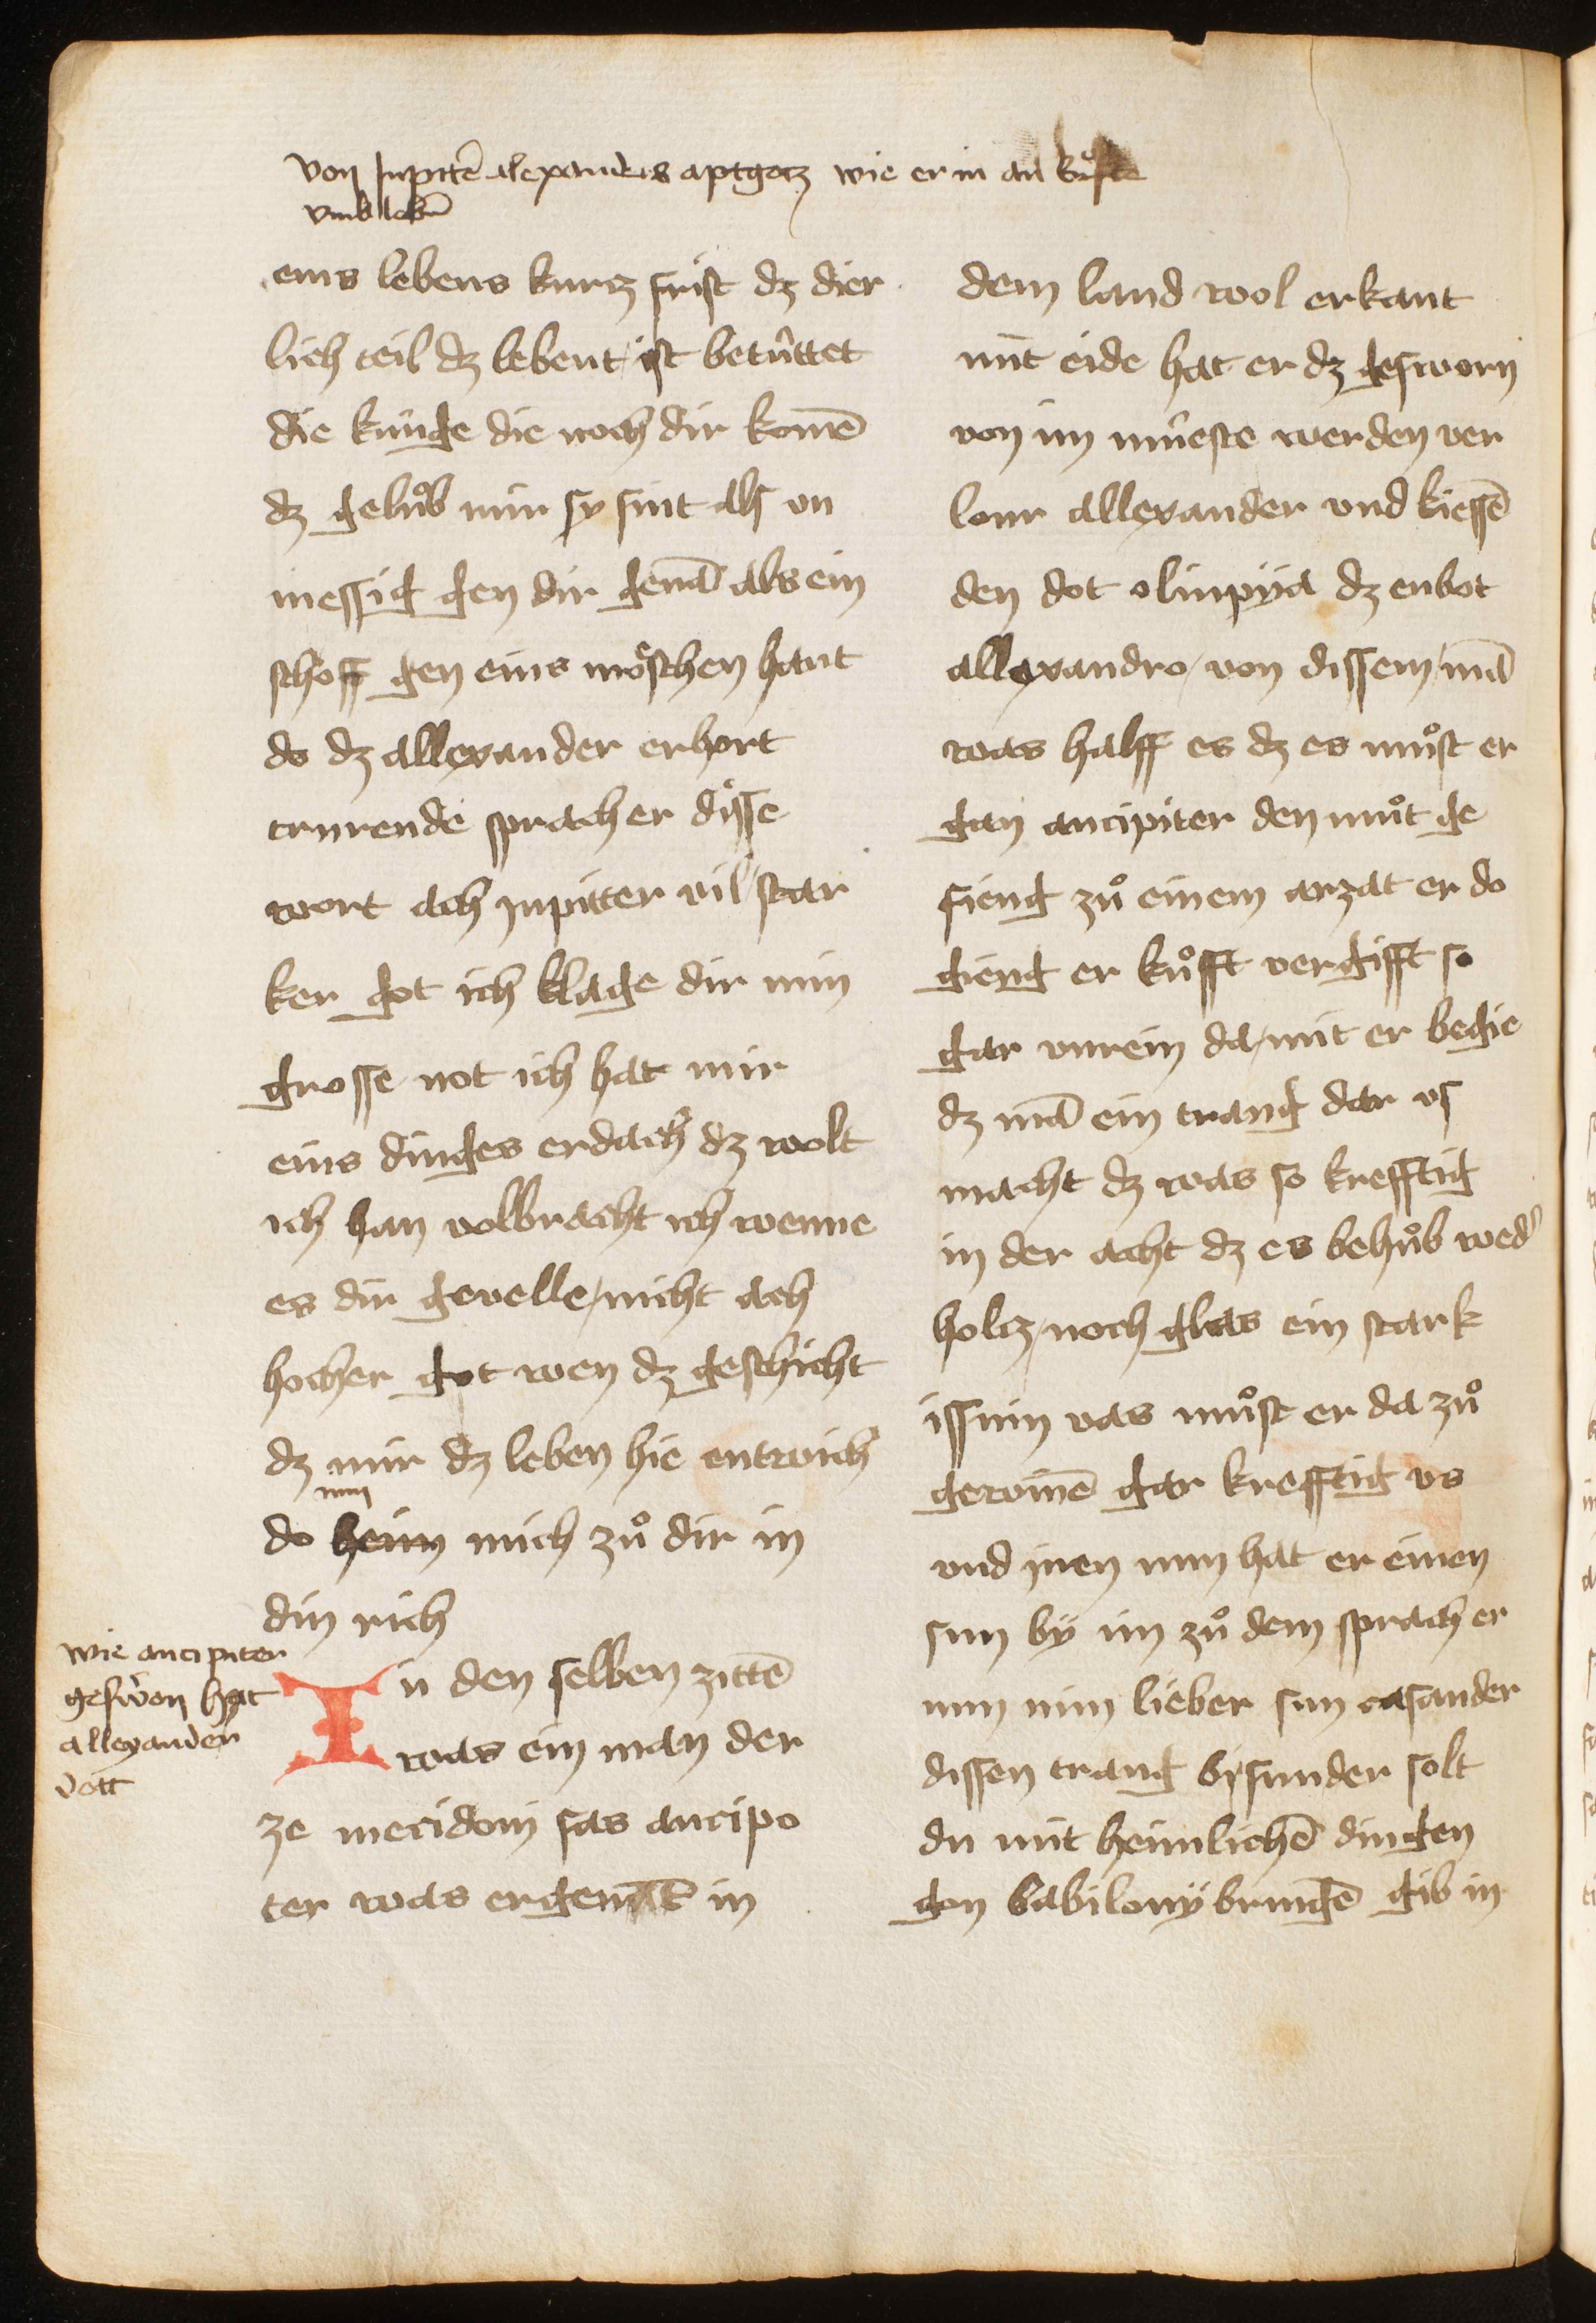 von Jupitē alexanders aptgotz wie er in an růfte
vmb lebē
eins lebens kurtz frist dz dier
lich teil dz lebent ist betúttet
die kúnge die noch dir komē
dz geloͮb mir sy sint als vn
messig gen dir genā als ein
schoff gen eins moͤschen hant
do dz allexander erhort
trurende sprach er disse
wort ach jupitter vil star
ker got ich klage dir min
grosse not ich hat mir
eins dinges erdach dz wolt
ich han volbracht ich wenne
es dir gevelle nicht ach
hocher got wen dz geschicht
dz mir dz leben hie entwich
nim
do heim mich zuͦ dir in
din rich
wie ancipiter
gesworn hat
allexander
dott
In den selben zittē
was ein man der
ze mecidoni sas ancipo
ter was er genāt in
dem land wol erkant
mit eide hat er dz gesworn
von im múeste werden ver
lour allexander vnd kiessē
den dot olinpÿa dz enbot
allexandro von dissem mā
was halff es dz es muͦst er
gan ancipiter den muͦt ge
fieng zuͦ einem arzat er do
gieng er koͮfft vergifft so
gar vnrein da mit er begie
dz mā ein trang dar vs
macht dz was so krefftig
in der acht dz es behuͦb wed'
holtz noch glas ein stark
issnin vas muͦst er da zuͦ
gewinē gar krefftig vs
vnd jnen nun hat er einen
sun by im zuͦ dem sprach er
nim min lieber sun casander
dissen trang bÿsunder solt
du mit heimlichē dingen
gon babilonÿ bringē gib in